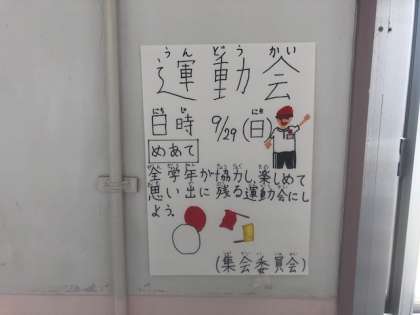 運動会
日時 9/29(日)
めあて
全学年が協力し、楽しめて
思い出に残る運動会にし
よう。
(集会委員会)